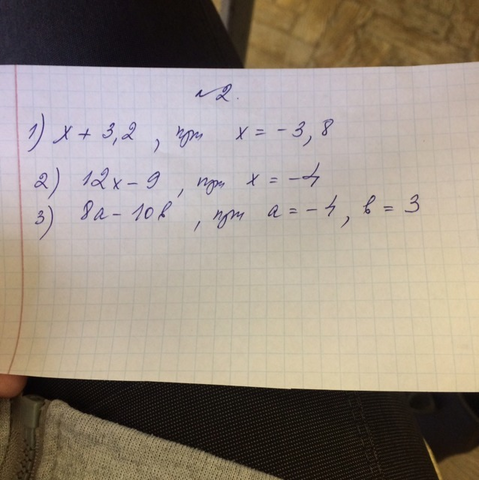 №2.
1) x + 3,2 , при x = -3,8
2) 12x - 9 , при x = -4
3) 8a - 10в , при a = -4, в = 3